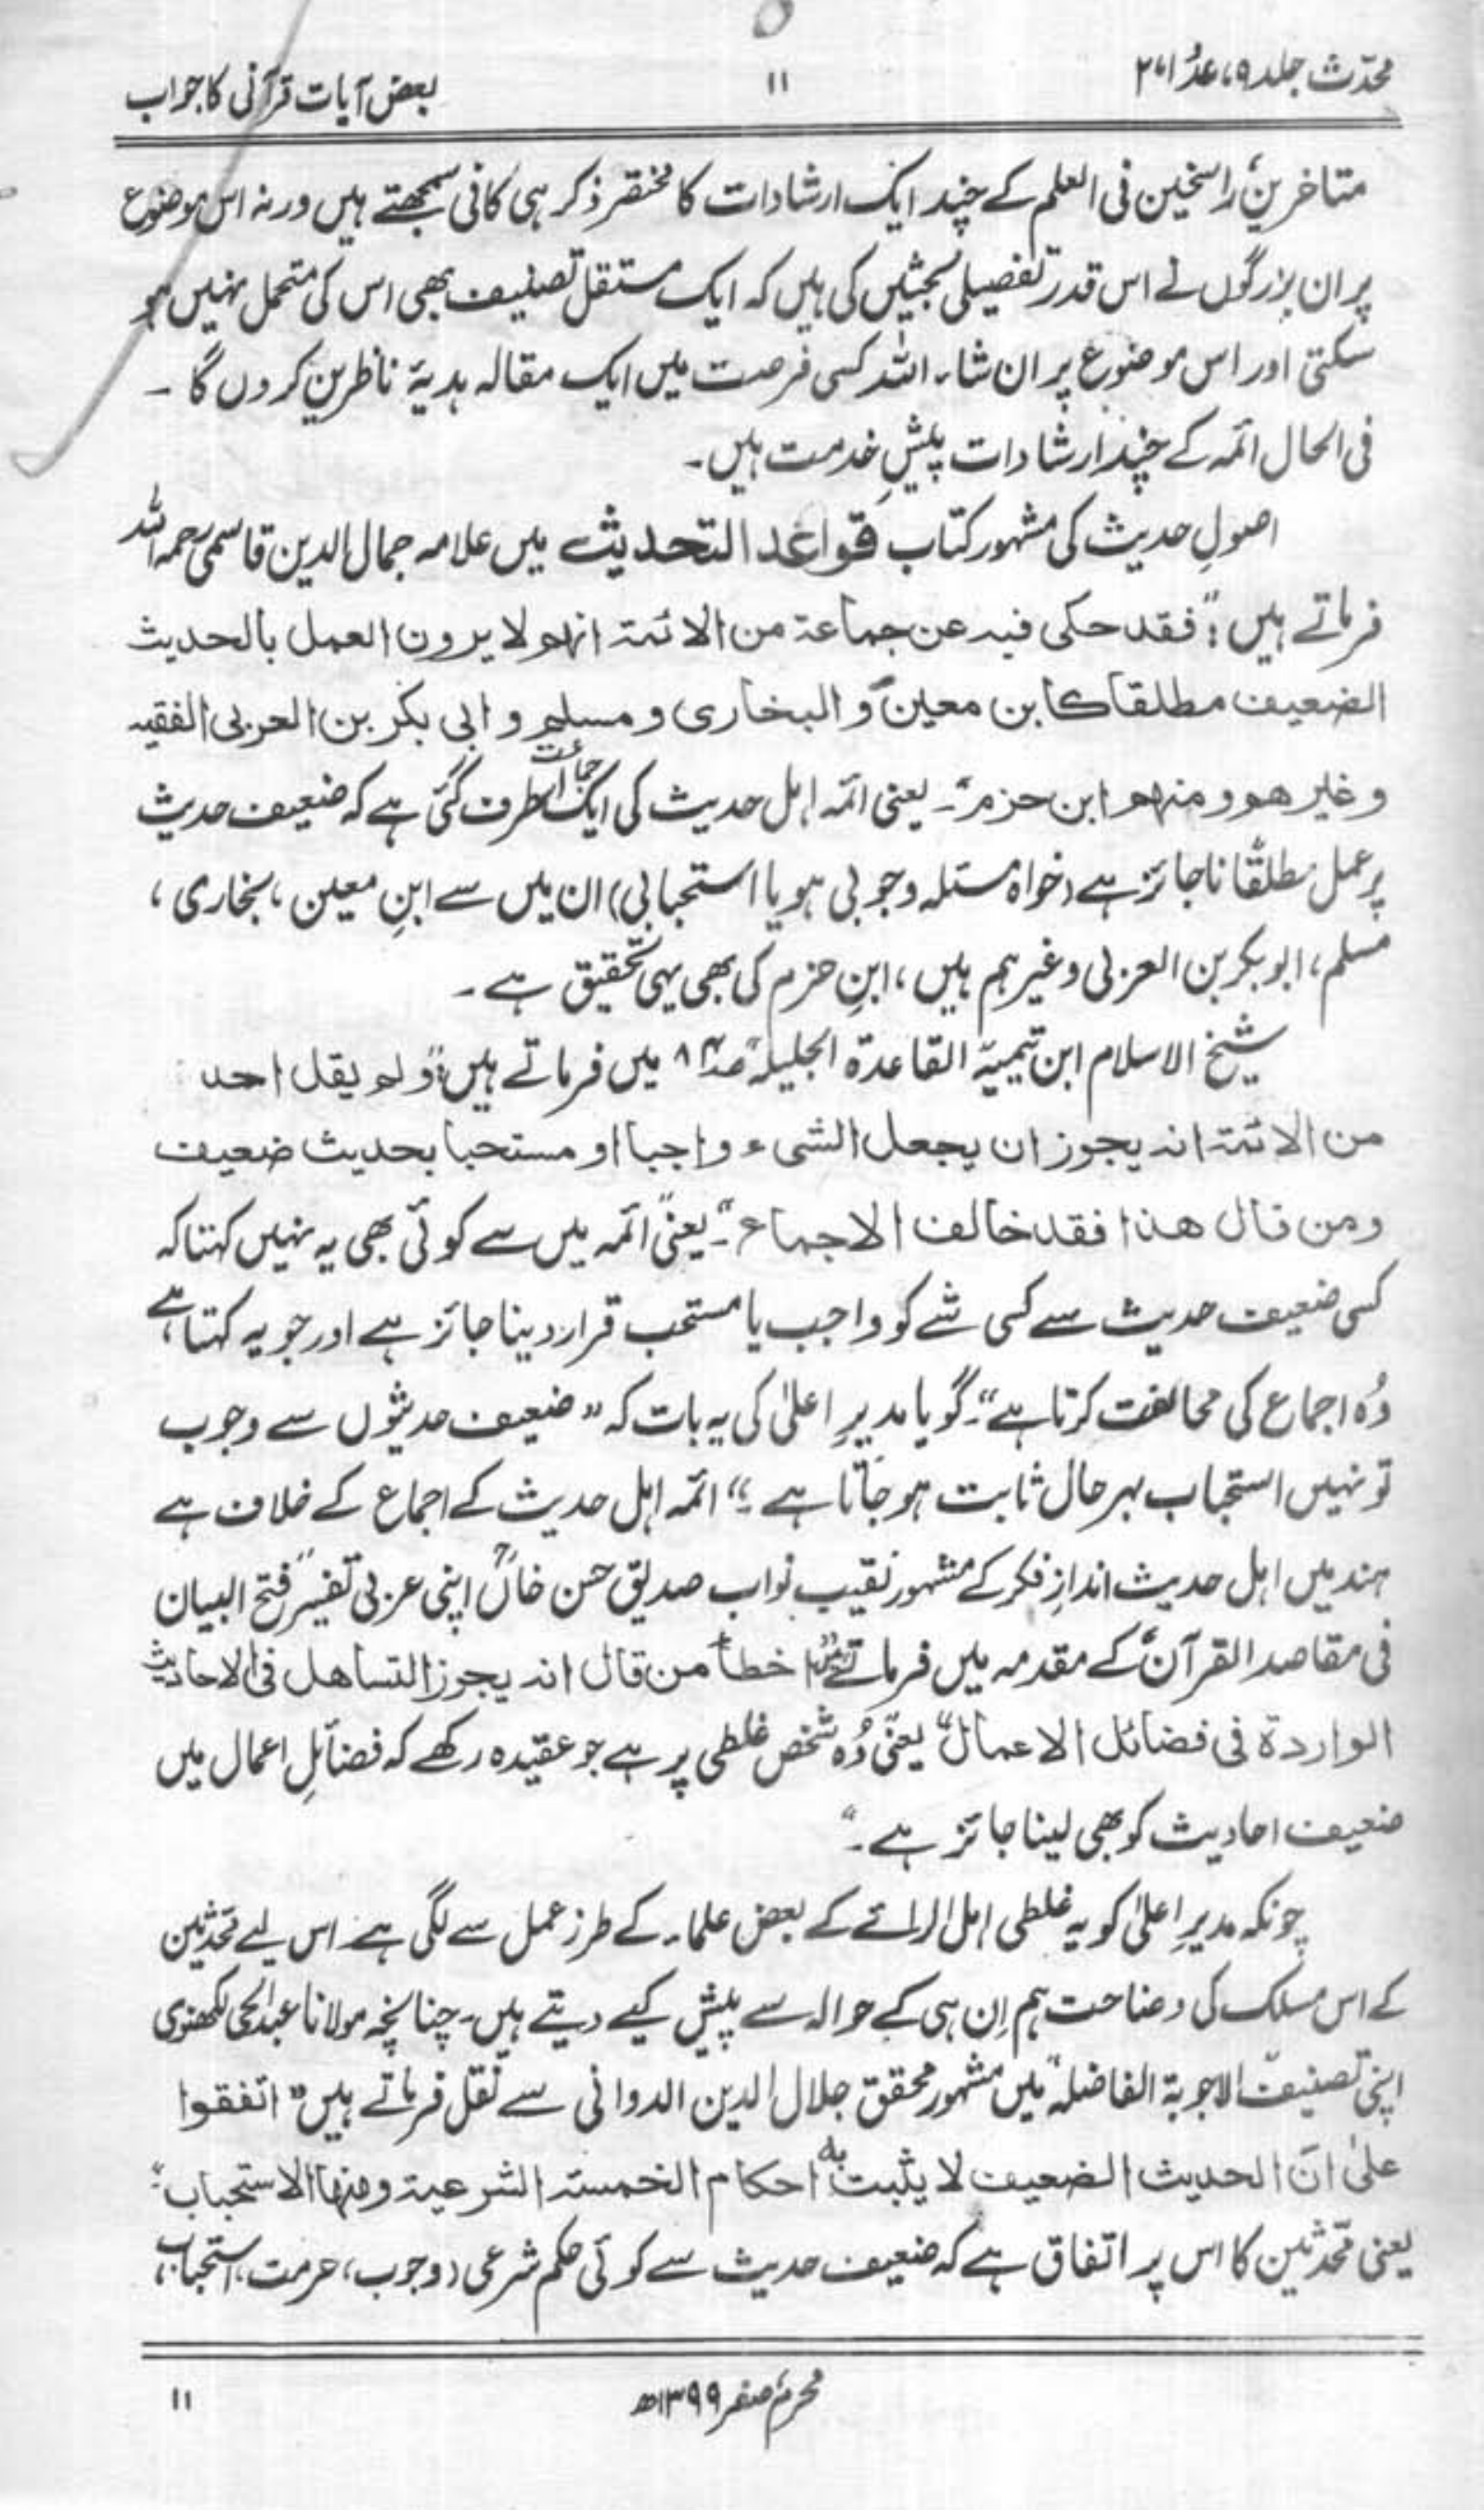 محدّث جلد ۹، عدد ۲،۱
۱۱
بعض آیات قرآنی کا جواب
متاخرین، راسخین فی العلم کے چند ایک ارشادات کا مختصر ذکر ہی کافی سمجھتے ہیں ورنہ اس موضوع
پر ان بزرگوں نے اس قدر تفصیلی بحثیں کی ہیں کہ ایک مستقل تصنیف بھی اس کی متحمل نہیں ہو
سکتی اور اس موضوع پر ان شاء اللہ کسی فرصت میں ایک مقالہ ہدیۂ ناظرین کروں گا ۔
فی الحال ائمہ کے چند ارشادات پیشِ خدمت ہیں۔
اصولِ حدیث کی مشہور کتاب قواعد التحدیث میں علامہ جمال الدین قاسمی رحمہ اللہ
فرماتے ہیں : "فقد حکی فیہ عن جماعۃ من الائمۃ انھم لا یرون العمل بالحدیث
الضعیف مطلقا کابن معین و البخاری و مسلم و ابی بکر بن العربی الفقیہ
و غیرھم و منھم ابن حزم"۔ یعنی ائمہ اہل حدیث کی ایک جماعت اس طرف گئی ہے کہ ضعیف حدیث
پر عمل مطلقًا ناجائز ہے (خواہ مسئلہ وجوبی ہو یا استحبابی) ان میں سے ابنِ معین ، بخاری ،
مسلم، ابوبکر بن العربی وغیرہم ہیں، ابنِ حزم کی بھی یہی تحقیق ہے ۔
شیخ الاسلام ابن تیمیہ القاعدۃ الجلیلہ" صـ۸۴ میں فرماتے ہیں : "و لم یقل احد
من الائمۃ انہ یجوز ان یجعل الشیء واجبا او مستحبا بحدیث ضعیف
ومن قال ھذا فقد خالف الاجماع"۔ یعنی "ائمہ میں سے کوئی بھی یہ نہیں کہتا کہ
کسی ضعیف حدیث سے کسی شے کو واجب یا مستحب قرار دینا جائز ہے اور جو یہ کہتا ہے
وُہ اجماع کی مخالفت کرتا ہے"۔ گویا مدیرِ اعلیٰ کی یہ بات کہ "ضعیف حدیثوں سے وجوب
تو نہیں استحباب بہرحال ثابت ہو جاتا ہے ۔" ائمہ اہل حدیث کے اجماع کے خلاف ہے
ہند میں اہل حدیث اندازِ فکر کے مشہور نقیب نواب صدیق حسن خاںؒ اپنی عربی تفسیر "فتح البیان
فی مقاصد القرآن" کے مقدمہ میں فرماتے ہیں "خطأ من قال انہ یجوز التساھل فی الاحادیث
الواردۃ فی فضائل الاعمال" یعنی وُہ شخص غلطی پر ہے جو عقیدہ رکھے کہ فضائلِ اعمال میں
ضعیف احادیث کو بھی لینا جائز ہے ۔"
چونکہ مدیرِ اعلیٰ کو یہ غلطی اہل الرائے کے بعض علماء کے طرز عمل سے لگی ہے اس لیے محدّثین
کے اس مسلک کی وضاحت ہم اِن ہی کے حوالہ سے پیش کیے دیتے ہیں۔ چنانچہ مولانا عبدالحی لکھنوی
اپنی تصنیف "الاجوبۃ الفاضلہ" میں مشہور محقق جلال الدین الدوانی سے نقل فرماتے ہیں "اتفقوا
علیٰ انّ الحدیث الضعیف لا یثبت بہ احکام الخمسۃ الشرعیۃ ومنھا الاستحباب"۔
یعنی محدّثین کا اس پر اتفاق ہے کہ ضعیف حدیث سے کوئی حکم شرعی (وجوب، حرمت، استحباب،
محرم، صفر ۱۳۹۹ھ
۱۱